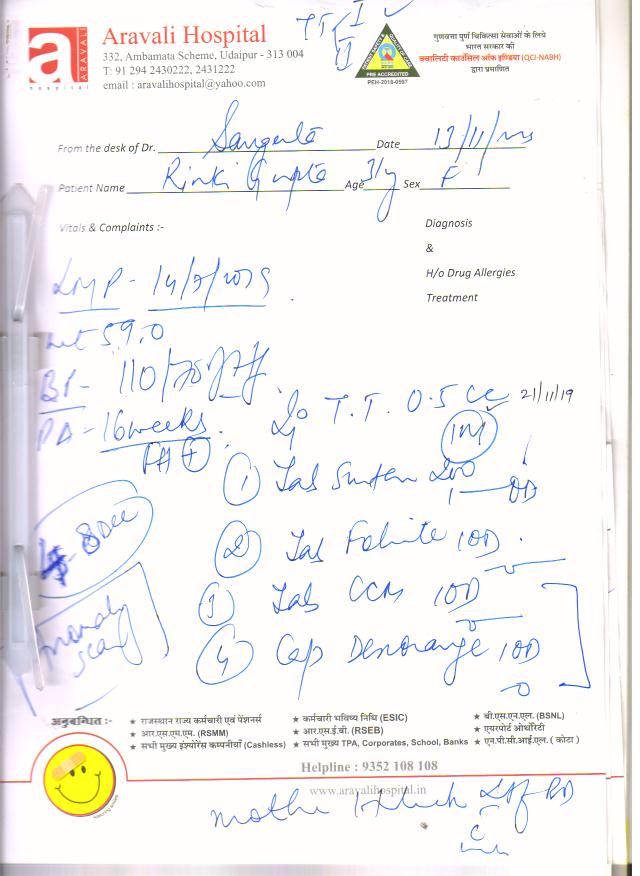 TT I
II
a
ARAVALI
hospital
Aravali Hospital
332, Ambamata Scheme, Udaipur - 313 004
T: 91 294 2430222, 2431222
email : aravalihospital@yahoo.com
PRE ACCREDITED
PEH-2016-0597
गुणवत्ता पूर्ण चिकित्सा सेवाओं के लिये
भारत सरकार की
क्वालिटी काउंसिल ऑफ इण्डिया (QCI-NABH)
द्वारा प्रमाणित
From the desk of Dr. Date 13/11/
Patient Name Rinki Gupta Age 31y Sex F
Vitals & Complaints :-
Diagnosis
&
H/o Drug Allergies
Treatment
LMP - 14/7/2019
wt 59.0
BP - 110/70
PA - 16 weeks
T.T. 0.5 cc 21/11/19
IM
1 Tab 200
1 OD
2 Tab Folinite 1OD
3 Tab CCM 1OD
4 Cap Denorange 1OD
8 Dec
scan
अनुबन्धित :-
★ राजस्थान राज्य कर्मचारी एवं पेंशनर्स ★ कर्मचारी भविष्य निधि (ESIC) ★ बी.एस.एन.एल. (BSNL)
★ आर.एस.एम.एम. (RSMM) ★ आर.एस.ई.बी. (RSEB) ★ एयरपोर्ट ओथोरिटी
★ सभी मुख्य इंश्योरेंस कम्पनीयाँ (Cashless) ★ सभी मुख्य TPA, Corporates, School, Banks ★ एन.पी.सी.आई.एल. ( कोटा )
Helpline : 9352 108 108
www.aravalihospital.in